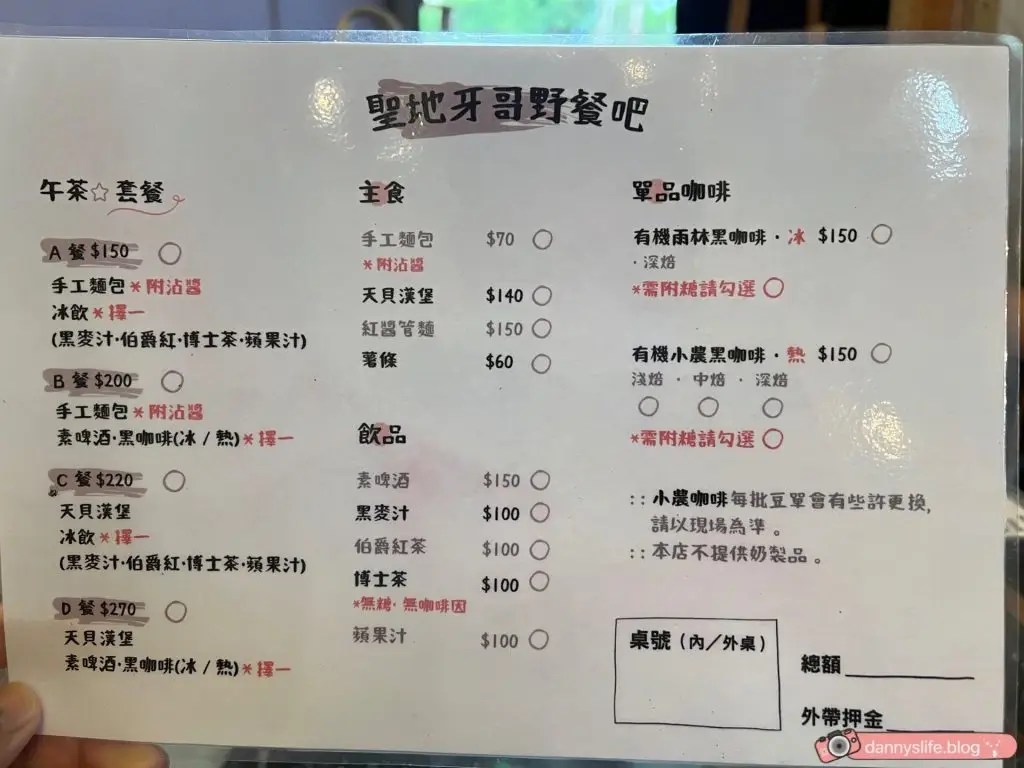 聖地牙哥野餐吧
午茶☆套餐
A 餐 $150
手工麵包*附沾醬
冰飲*擇一
(黑麥汁·伯爵紅·博士茶·蘋果汁)
B 餐 $200
手工麵包*附沾醬
素啤酒·黑咖啡(冰 / 熱)*擇一
C 餐 $220
天貝漢堡
冰飲*擇一
(黑麥汁·伯爵紅·博士茶·蘋果汁)
D 餐 $270
天貝漢堡
素啤酒·黑咖啡(冰 / 熱)*擇一
主食
手工麵包 $70
*附沾醬
天貝漢堡 $140
紅醬管麵 $150
薯條 $60
飲品
素啤酒 $150
黑麥汁 $100
伯爵紅茶 $100
博士茶 $100
*無糖·無咖啡因
蘋果汁 $100
單品咖啡
有機雨林黑咖啡·冰 $150
·深焙
*需附糖請勾選
有機小農黑咖啡·熱 $150
淺焙 · 中焙 · 深焙
*需附糖請勾選
:: 小農咖啡每批豆單會有些許更換,
請以現場為準。
:: 本店不提供奶製品。
桌號（內／外桌）
總額
外帶押金
dannyslife.blog